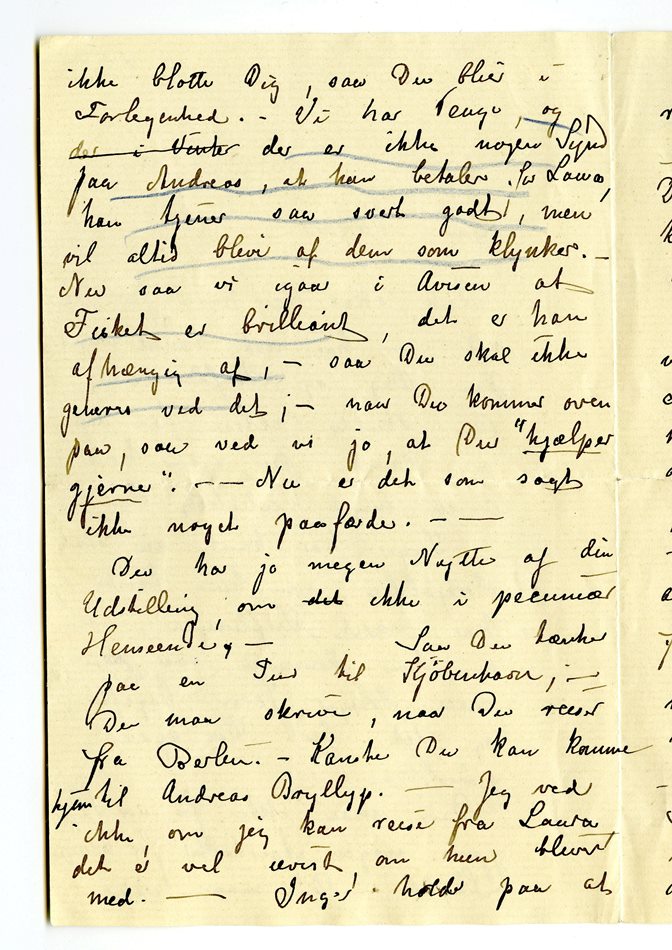 ikke blotte Dig, saa Du blier i
Forlegenhed. - Vi har Penge, og
der i Vinter der er ikke nogen Synd
paa Andreas, at han betaler for Laura,
han tjener saa svert godt, men
vil altid blive af dem som klynker. -
Nu saa vi igaar i Avisen at
Fisket er brilliant, det er han
afhængig af, - saa Du skal ikke
generes ved det; - naar Du kommer oven
paa, saa ved vi jo, at Du "hjælper
gjerne". - - Nu er det som sagt
ikke noget paafærde. - -
Du har jo megen Nytte af din
Udstilling, om det ikke i pecuniær
Henseende, - Saa Du tænker
paa en Tur til Kjöbenhavn, -
Du maa skrive, naar Du reiser
fra Berlin. - Kanske Du kan komme
hjem til Andreas Bryllyp. - Jeg ved
ikke, om jeg kan reise fra Laura
det er vel uvist, om hun bliver
med. - Inger holder paa at